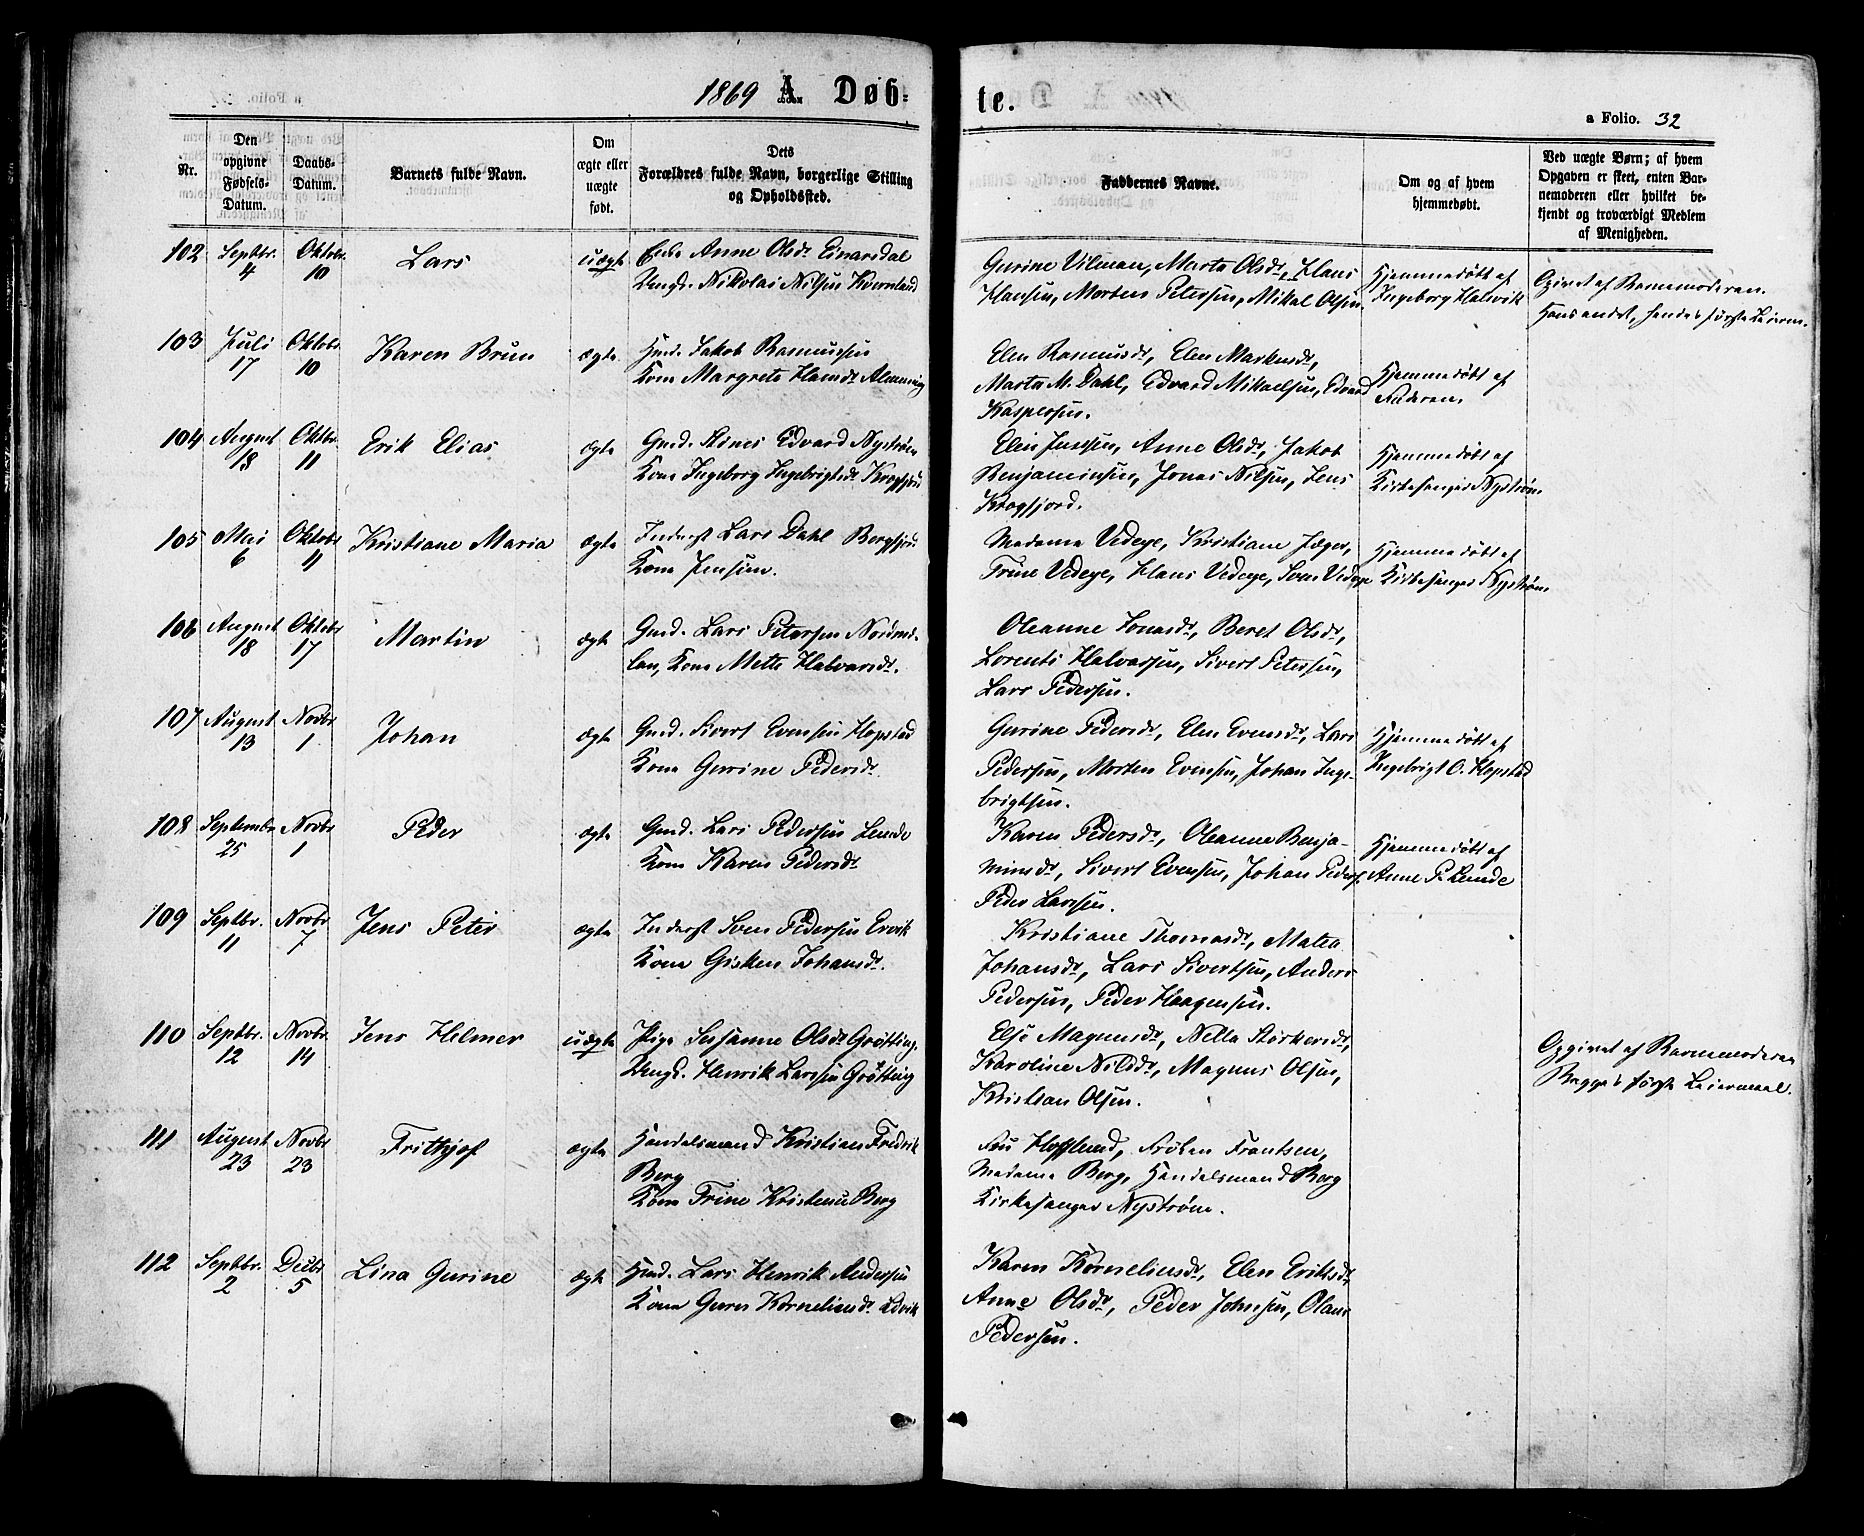 1869 A. Døb-
te.
a Folio. 32
Nr.
Den opgivne Fødsels-Datum.
Daabs-Datum.
Barnets fulde Navn.
Om ægte eller uægte født.
Dets Forældres fulde Navn, borgerlige Stilling og Opholdssted.
Faddernes Navne.
Om og af hvem hjemmedøbt.
Ved uægte Børn; af hvem Opgaven er skeet, enten Barnemoderen eller hvilket bekjendt og troværdigt Medlem af Menigheden.
102 Septbr. 4 Oktobr. 10 Lars uægte
Enke Anne Olsdr Einarsdal
Ungk. Nikolai Nilsen Kvernland
Gurine Vilman, Marta Olsdr, Hans
Hansen, Morten Petersen, Mikal Olsen.
Hjemmedøbt af
Ingeborg Halsvik
Opgivet af Barnemoderen.
Hans andet, hendes første Leierm.
103 Juli 17 Oktobr. 10 Karen Brun ægte
Hmd. Jakob Rasmussen
Kone Margrete Hansdr Almenning
Elen Rasmusdr, Elen Markusdr,
Marta M. Dahl, Edvard Mikaelsen, Edvard
Kaspersen.
Hjemmedøbt af
Faderen.
104 August 18 Oktbr. 11 Erik Elias ægte
Gmd. Edvard Nystrøm
Kone Ingeborg Ingebrigtsdr Krogfjord
Elen Jensen, Anne Olsdr, Jakob
Benjaminsen, Jonas Nilsen, Jens
Krogfjord.
Hjemmedøbt af
Kirkesanger Nystrøm
105 Mai 6 Oktobr. 11 Kristiane Maria ægte
Inderst Lars Dahl Bergfjord
Kone Jensen.
Madame Vedege, Kristiane Jæger,
Trine Vedege, Hans Vedege, Sven Vedege
Hjemmedøbt af
Kirkesanger Nystrøm
106 August 18 Oktobr 17 Martin ægte
Gmd. Lars Petersen Nordme-
lan, Kone Mette Halvorsdr.
Oleanne Jonasdr, Beret Olsdr,
Lorents Halvorsen, Sivert Petersen,
Lars Pedersen.
107 August 13 Novbr 1 Johan ægte
Gmd. Sivert Evensen Hopstad
Kone Gurine Pedersdr.
Gurine Pedersdr, Elen Evensdr, Lars
Pedersen, Morten Evensen, Johan Inge-
brigtsen.
Hjemmedøbt af
Ingebrigt O. Hopstad
108 Septembr 25 Novbr 1 Peder ægte
Gmd. Lars Pedersen Lunde
Kone Karen Pedersdr.
Karen Pedersdr, Oleanne Benja-
minsdr, Sivert Evensen, Johan Peders.
Peder Larsen.
Hjemmedøbt af
Anne P. Lunde
109 Septbr. 11 Novbr 7 Jens Peter ægte
Inderst Sven Pedersen Ervik
Kone Gisken Johansdr.
Kristiane Thomasdr, Matea
Johansdr, Lars Sivertsen, Anders
Pedersen, Peder Haagensen.
110 Septbr. 12 Novbr. 14 Jens Hilmer uægte
Pige Susanne Olsdr Grøtting.
Ungk. Henrik Larsen Grøtting
Else Magnusdr, Nella Størkersdr,
Karoline Nilsdr, Magnus Olsen,
Kristian Olsen.
Opgivet af Barnemoderen
Begges første Leiermaal.
111 August 23 Novbr 23 Frithjof ægte
Handelsmand Kristian Fredrik
Berg
Kone Trine Kristense Berg
Fru Hofflund, Frøken Frantsen,
Madame Berg, Handelsmand Berg
Kirkesanger Nystrøm.
112 Septbr. 2 Decbr 5 Lina Gurine ægte
Hmd. Lars Henrik Andersen
Kone Guren Korneliusdr Ledvik
Karen Korneliusdr, Elen Eriksdr
Anne Olsdr, Peder Johnsen, Olaus
Pedersen.